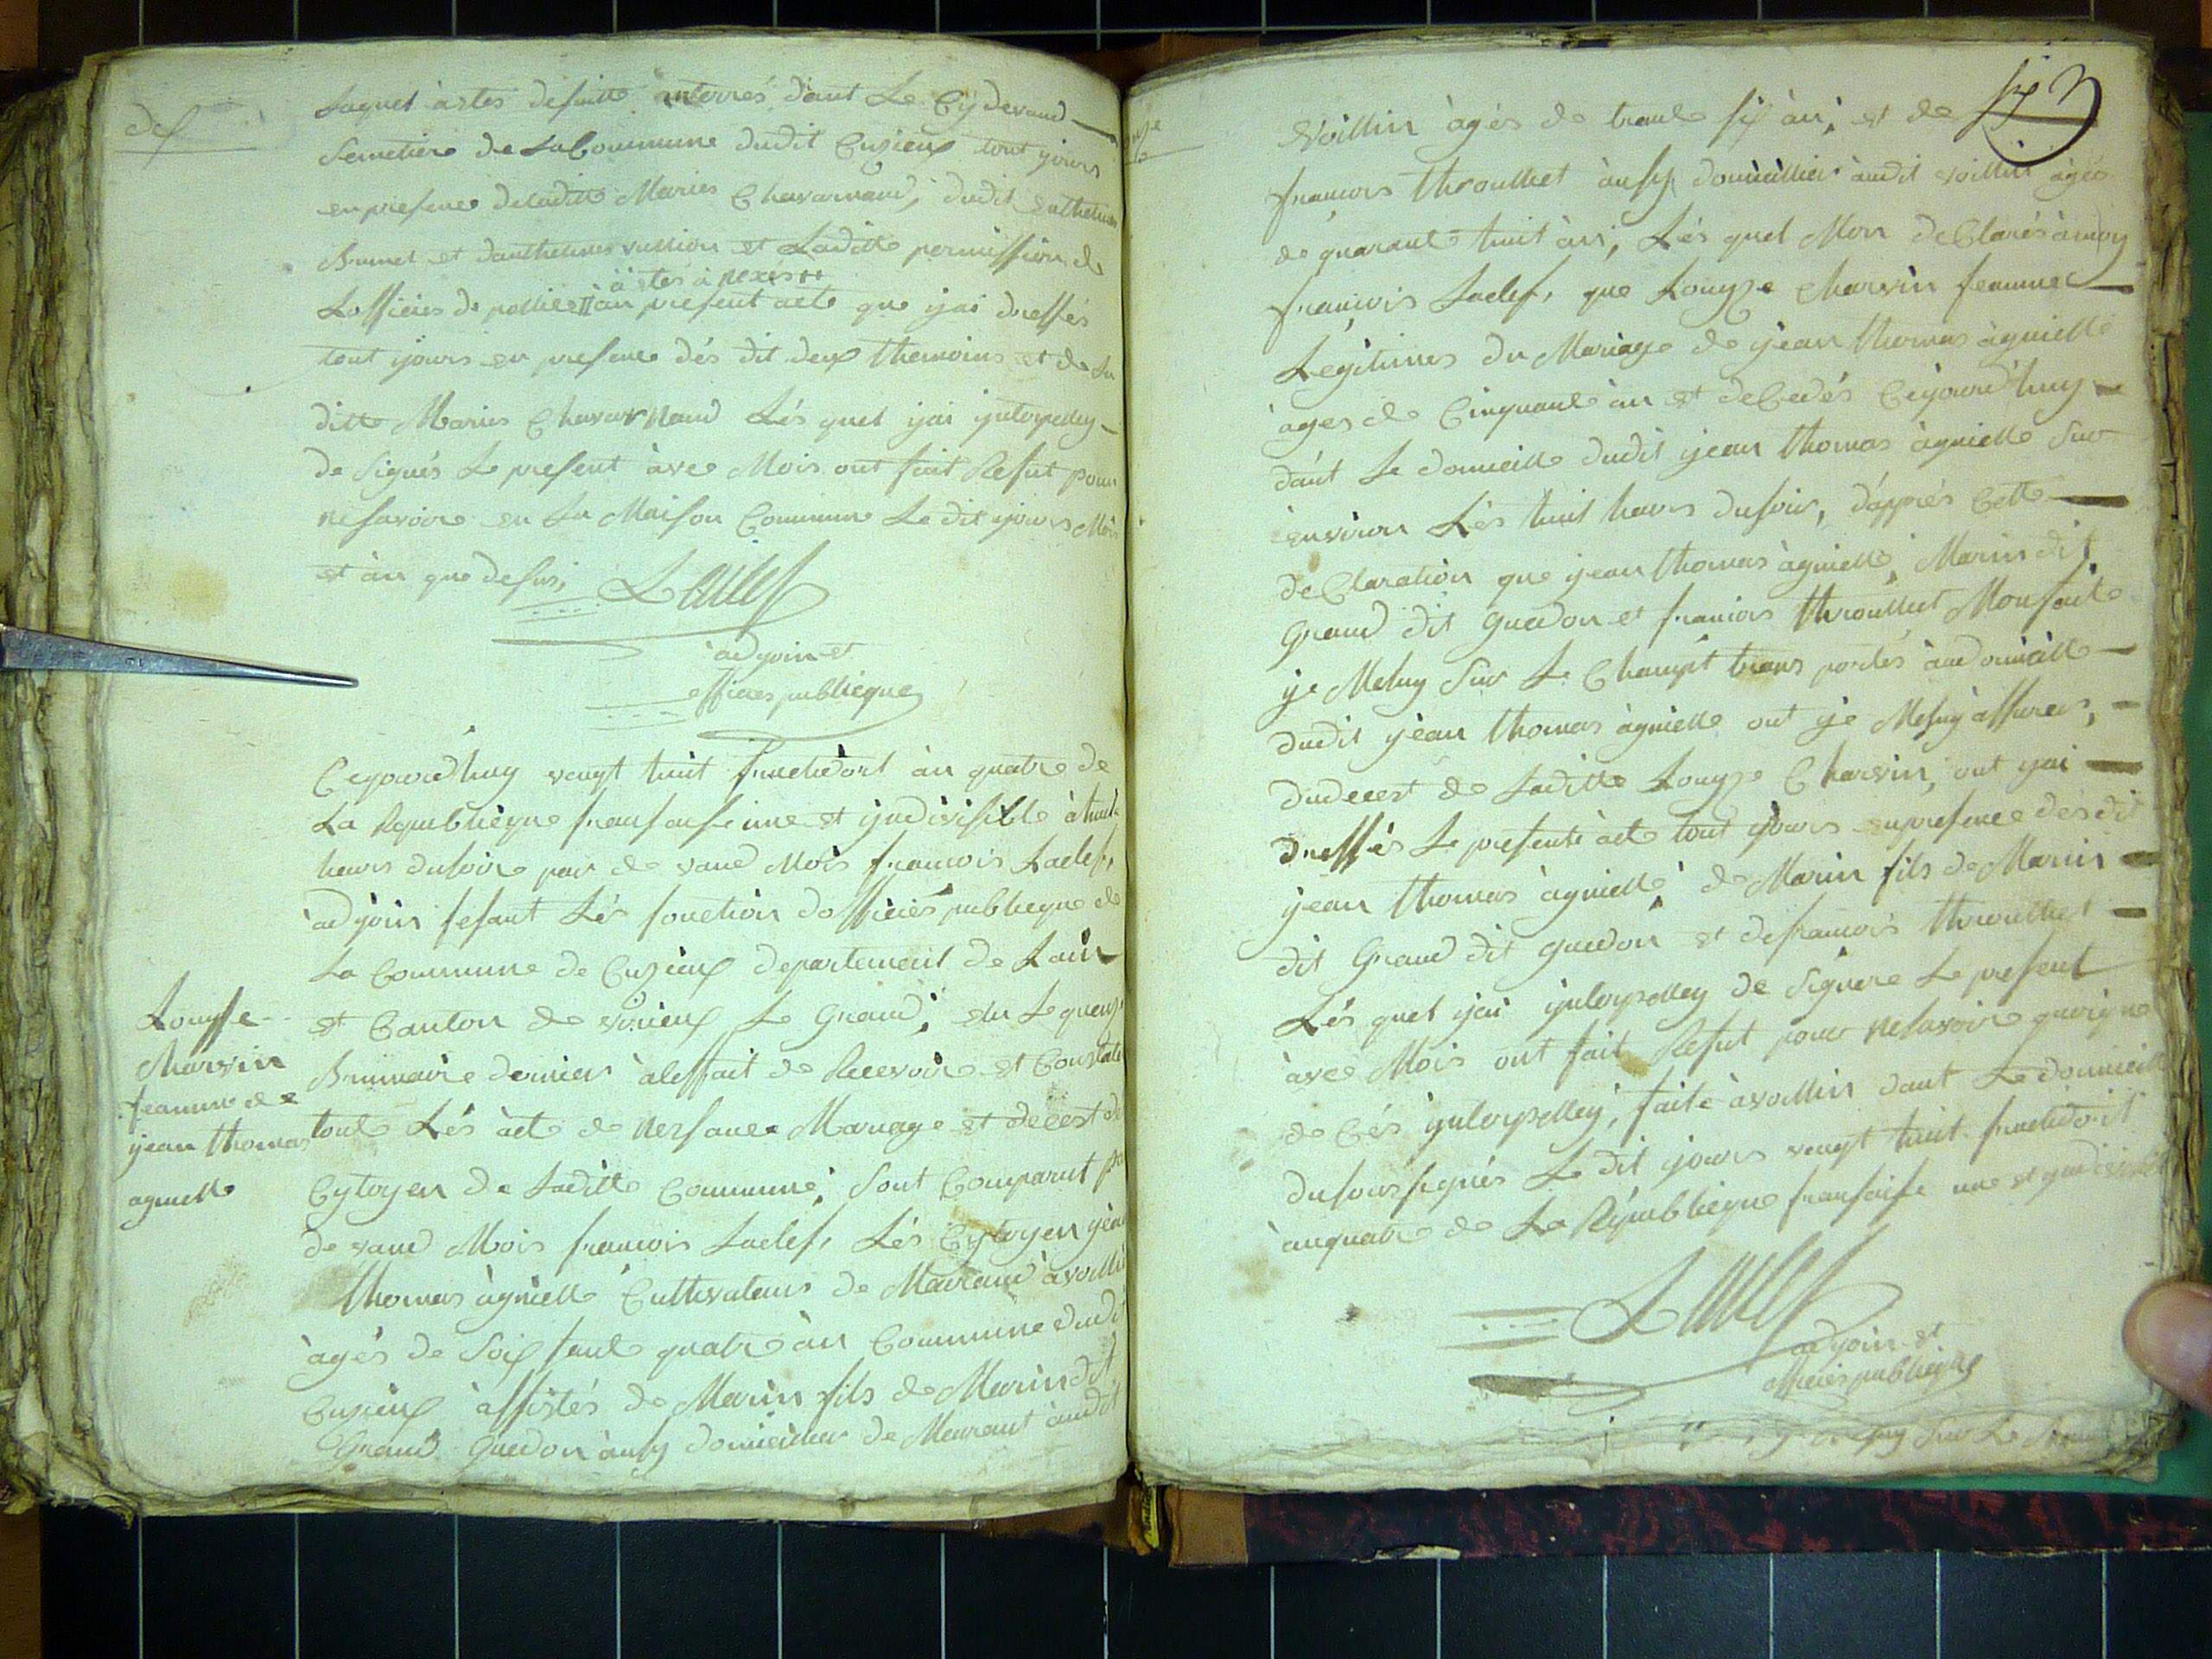 def
Laquel àstes desuitte anterrés dant Le Cÿ devand
Semetiere de La Commune dudit Cuzieux tout yours
en presence de laditte Maries Chavarnand, dudit Anthelme
Brunet et danthelmes vullion et Laditte permission de
à stes à nexer ++
Lofficies de pollice àu present acte que jai dressés
tout yours en presence dés dit deux themoins et de La
ditte Maries Chavarnand Lés quel ijai ynterpelley
de Signés Le present àvec Mois ont fait Refut pour
ne Savoire en La Maison Commune Le dit yours Mois
et àn que desus,
Laclef
àdyoin et
officies publieque
Ceyourd'huy vengt huit fruchidort àn quatre de
La Republieque fransaise une et yndivisible à huit
heurs du soire par de vand Mois francois Laclef,
àdyoin fesant Lés fonction dofficiés publieque de
La Commune de Cuzieux departement de Lain
et Canton de virieux Le Grand, elu Le quenze
Brumaire dernier à leffait de Recevoire et Constate
toute Lés àcte de nessance Mariage et decest de
Cytoyen de Laditte Commune, Sont Comparut par
de vand Mois francois Laclef, Lés Cytoyen yean
thomas àgnielle Cultivateur de Marand à voillin
àgés de Soissante quatre àn Commune dudit
Cuzieux àssistés de Marin fils de Marin dit
Grand Guedon àusy domicilier de Mourant àudit
Louyse
Charvin
feamme de
yean thomas
agnielle
53
Voillin àgés de trante six àn, et de
francois throulliet àusy domicillier àudit voillin àgés
de quarante huit àn, Lés quel Mon declarés à moy
francois Laclef, que Louyze Charvin feamme
Legitimes du Mariage de yean thomas àgnielle
àges de Cinquante àn et decedés Ceyourd'huy
dant Le domicille dudit yean thomas àgnielle Sur
environ Lés huit heurs du soir, d'apprés Cette
declaration que yean thomas àgnielle, Marin dit
Grand dit Guedon et francois throulliet Mon faite
ye Me suy Sur Le Champt trans portés àu domicille
dudit yean thomas àgnielle ont ye Me suy àssures,
du decest de Laditte Louyze Charvin, ont yai
dressés Le presente àcte tout yours en presence dés dit
yean thomas àgnielle de Marin fils de Marin
dit Grand dit Guedon et de francois throulliet
Lés quel yai ynterpelley de Signere Le present
àvec Mois ont fait Refut pour ne Savoire quoique
de Cés ynterpelley, faite à voillin dant Le domicille
du soussignés Le dit yours vengt huit fruchidort
àn quatre de La Republieque fransaise une et yndivisible
Laclef
adyoin et
officies publieque